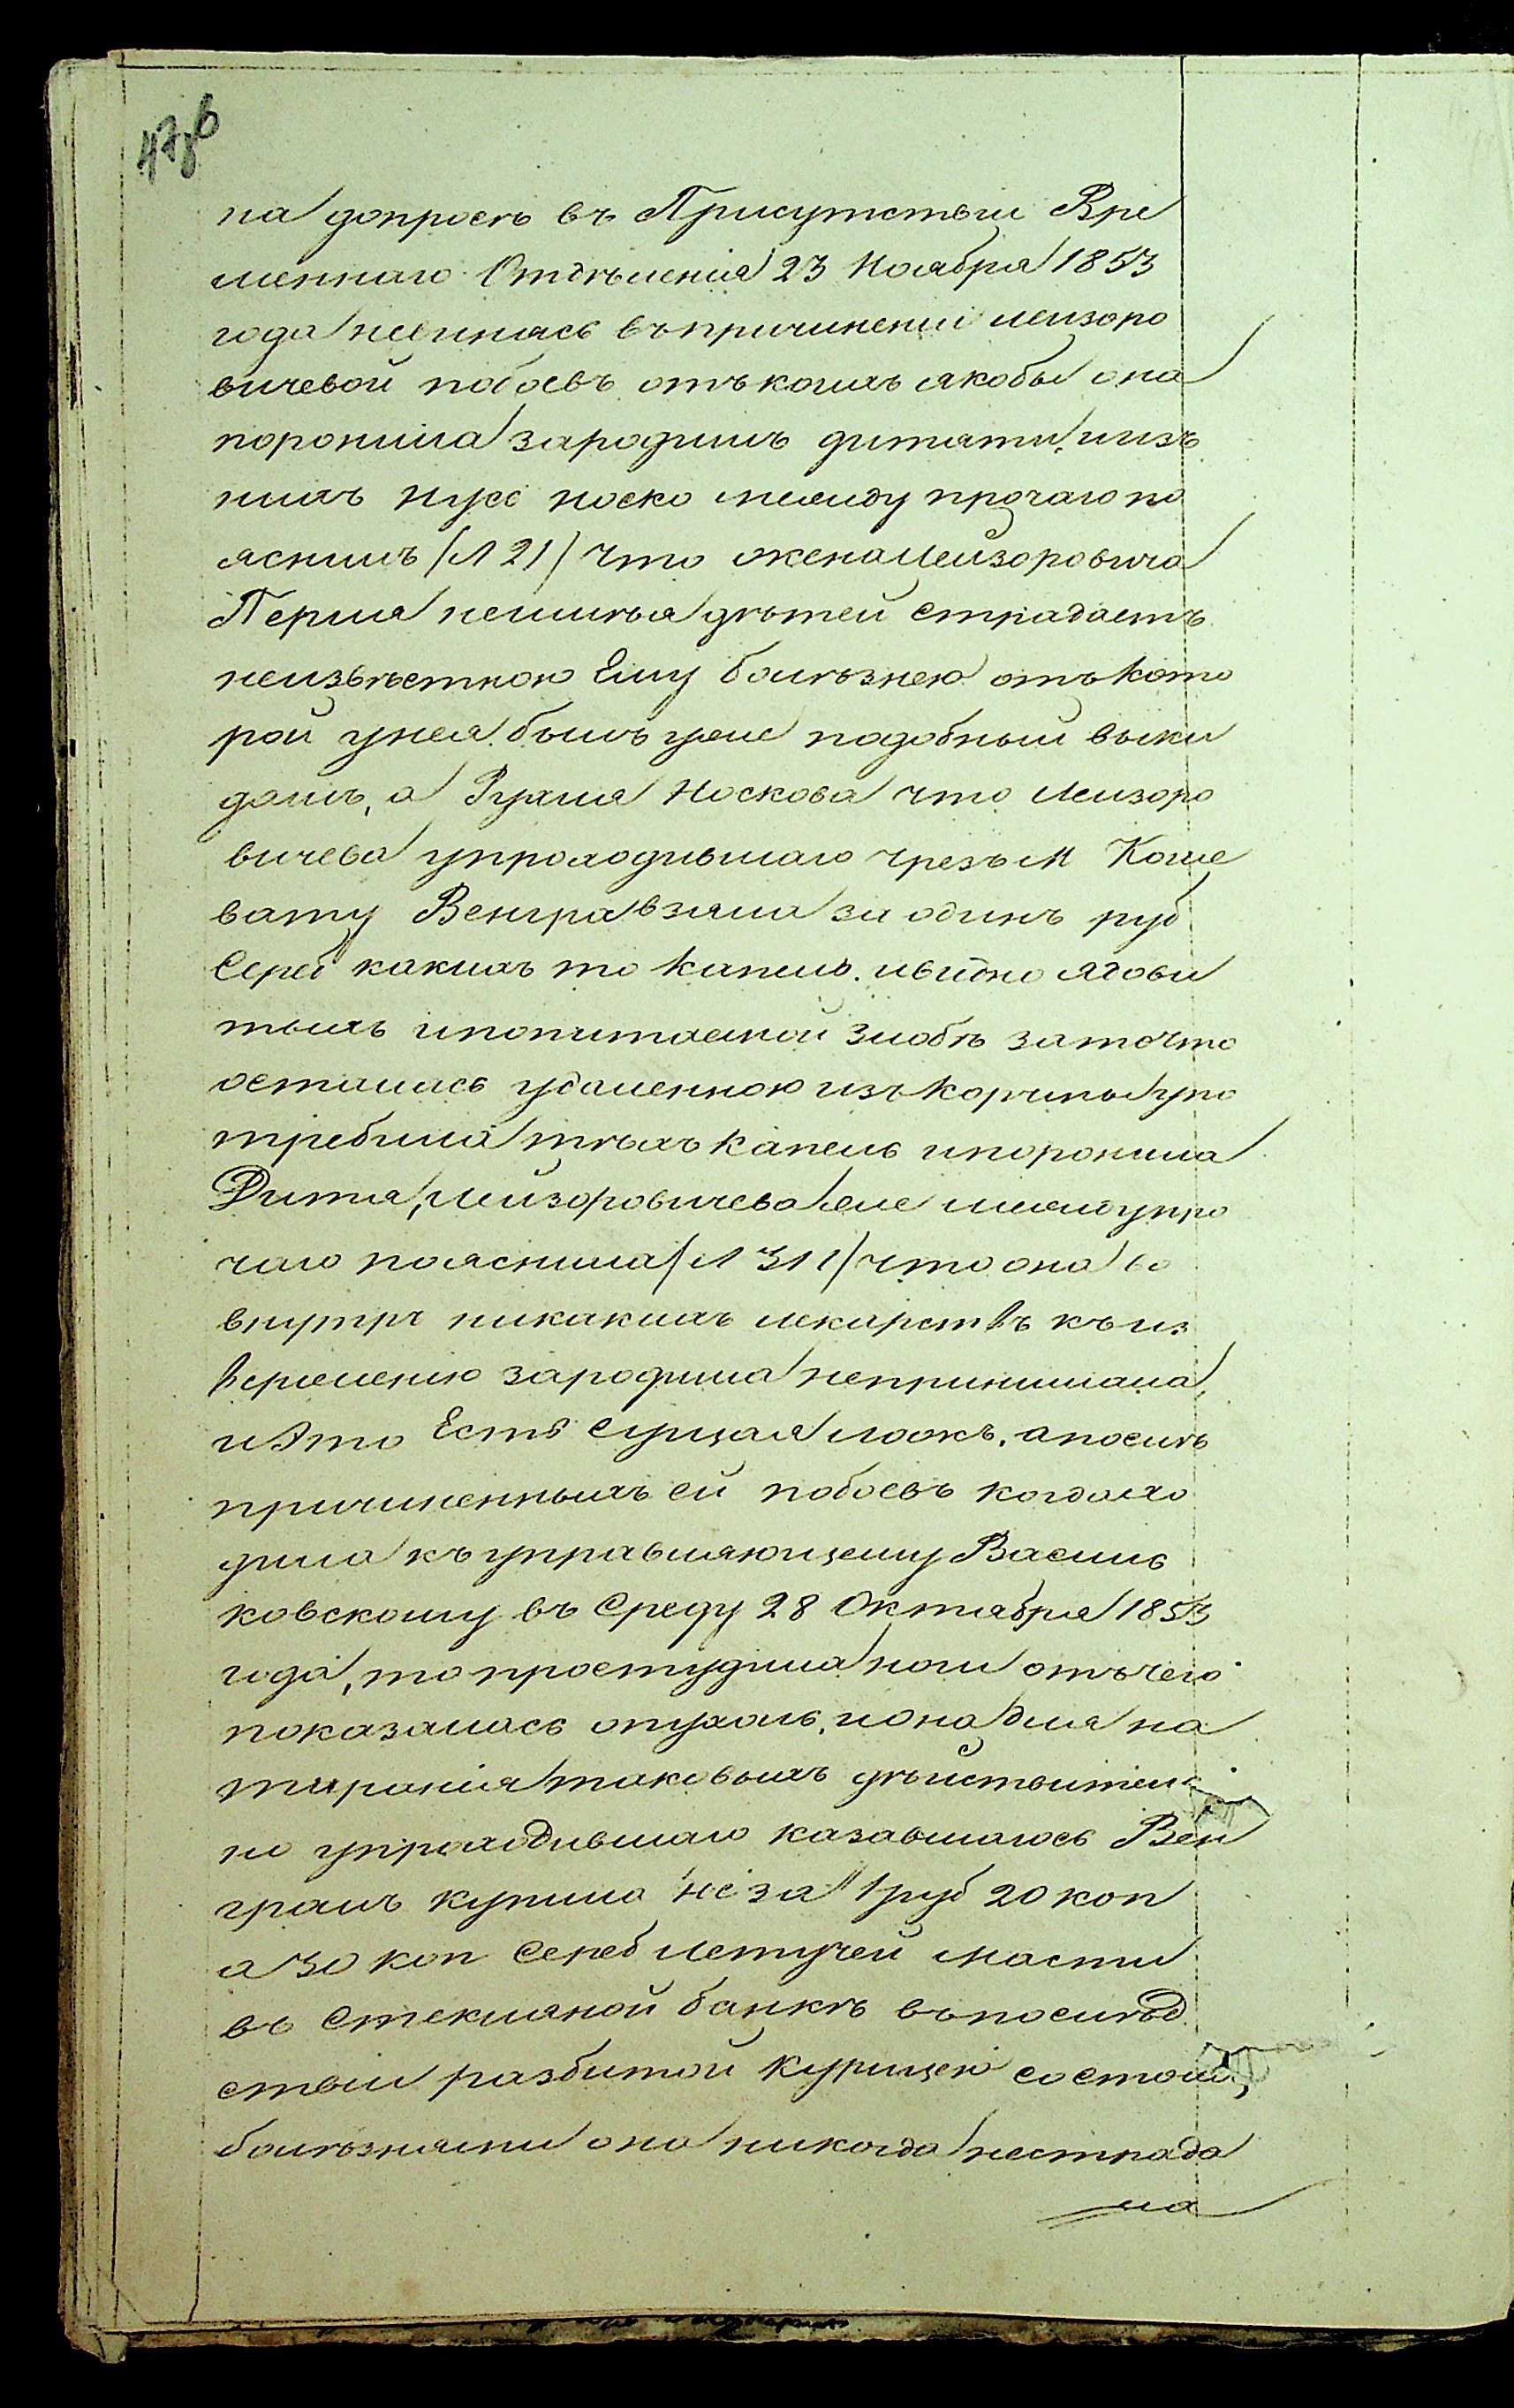 на допросѣ въ Присутствіи Вре
меннаго Отдѣленія 23 Ноября 1853
года невинясь въ причиненіи Леизоро
вичевой побоевъ отъ коихъ якобы она
поронила зародишъ дитяти, и изъ
нихъ Нусе Носко между прочаго по
яснилъ (Л 21) что жена Леизоровича
Перля неимѣя дѣтей страдаетъ
неизвѣстною Ему болѣзнею отъ кото
рой унея былъ уже подобный выки
дошъ, а Рухля Носкова что Леизоро
вичева упроходившаго чрезъ М Коше
вату Венгра взяла за одинъ руб
Сереб какихъ то капель. и видно ядови
тыхъ и попитаемой злобѣ зато что
осталась удаленною изъ корчмы упо
требила тѣхъ капель и поронила
Дитя, Лейзоровичева же между про
чаго пояснила (Л 311) что она во
внутрь никакихъ лекарствъ къ из
верженію зародиша непринимала,
и Это Есть Сущая ложь. а послѣ
причиненныхъ ей побоевъ когда хо
дила къ управляющему Василь
ковскому въ Среду 28 Октября 1853
года, то простудила ноги отъ чего
показалась опухоль, и она для на
тиранія таковыхъ дѣйствитель
но упроходившаго казавшагось Вен
громъ купила не за 1 руб 20 коп
а 30 коп Сереб Летучей Масти
въ Стекляной банкѣ въ послѣд
ствіи разбитой Курицею состоли,
болѣзнями она никогда нестрада
ла